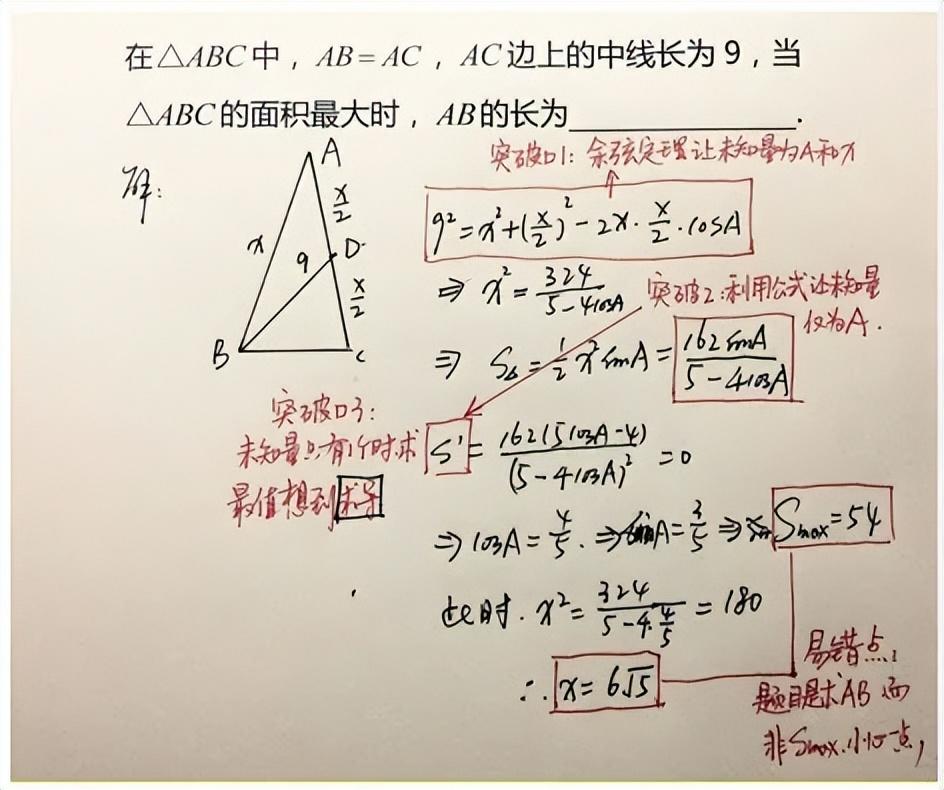 在△ABC中，AB=AC，AC边上的中线长为9，当
△ABC的面积最大时，AB的长为__________.
解：
A
x/2
x
9
D
x/2
B
C
突破口1：余弦定理让未知量为A和x
9²=x²+(x/2)²-2x·x/2·cosA
⇒ x²=324/(5-4cosA)
突破2：利用公式让未知量
仅为A.
⇒ S△=1/2x²sinA=162sinA/(5-4cosA)
突破口3：
未知量只有1个时求
最值想到求导
S'=162(5cosA-4)/(5-4cosA)²=0
⇒cosA=4/5. ⇒sinA=3/5 ⇒ Smax=54
此时. x²=324/(5-4·4/5)=180
∴ x=6√5
易错点，
题目是求AB而
非Smax.小心一点，